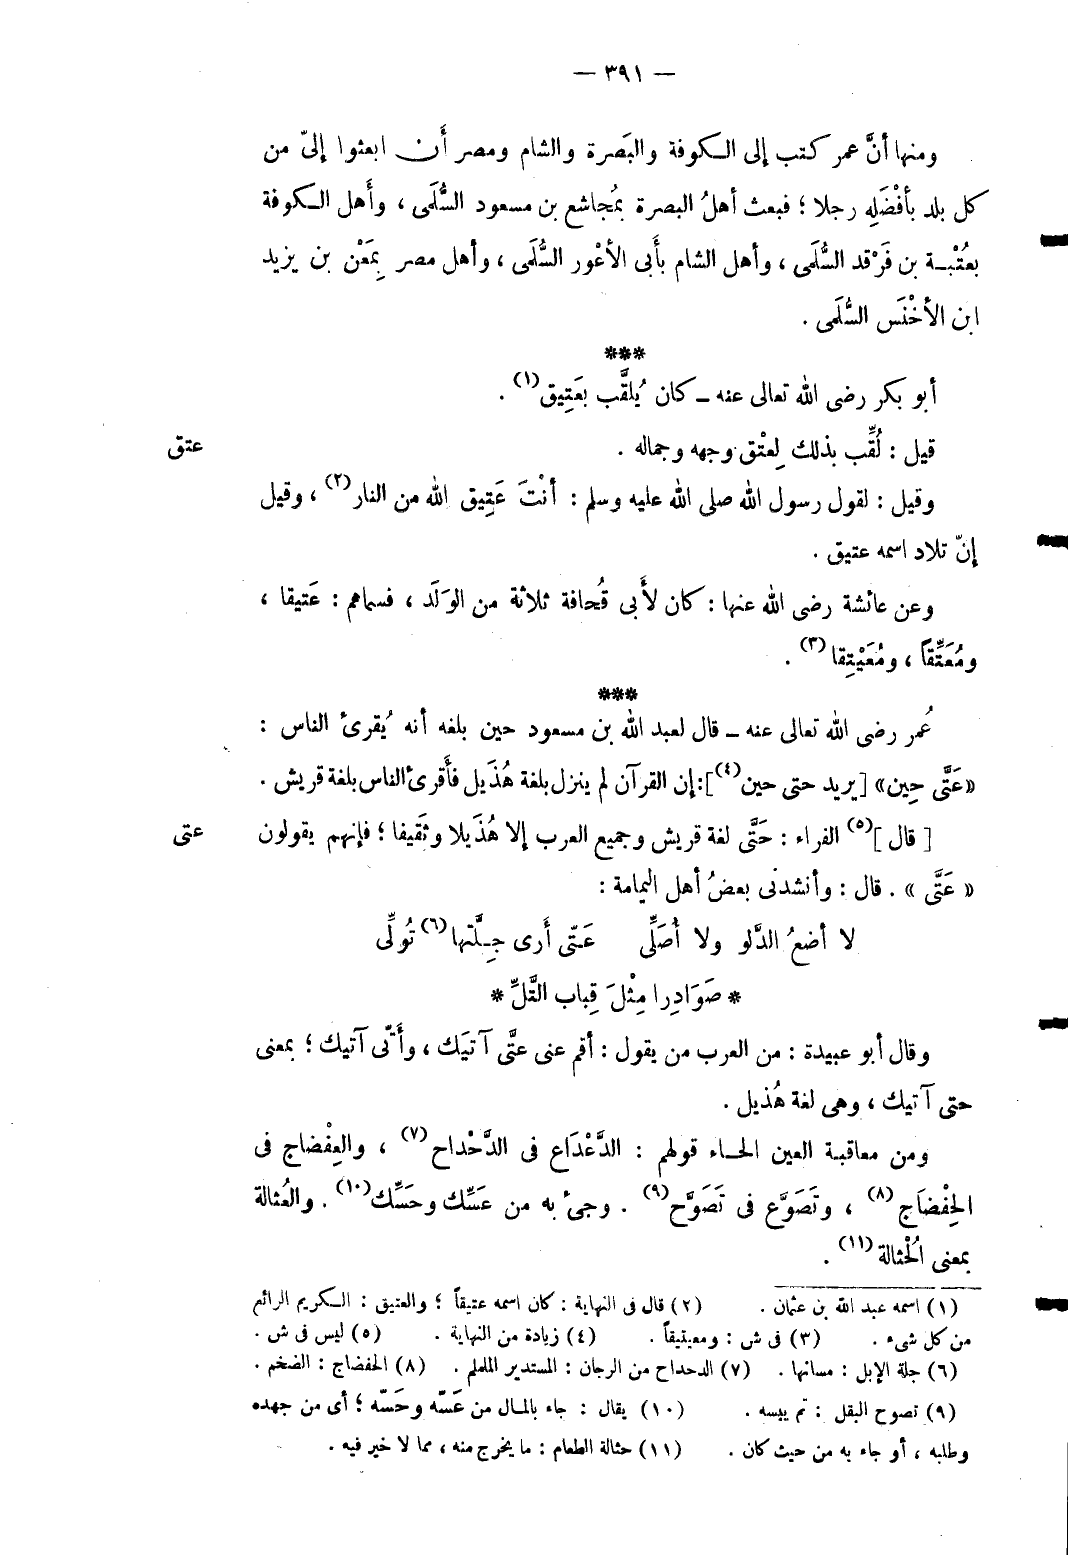 — ٣٩١ —
ومنها أنَّ عمر كتب إلى الكوفة والبَصرة والشام ومصر أَن ابعثوا إلىّ من
كل بلد بأفْضَلِه رجلا ؛ فبعث أهلُ البصرة بمُجاشع بن مسعود السُّلَمى ، وأَهل الكوفة
بعُتْبة بن فَرْقد السُّلَمى ، وأهل الشام بأَبى الأعْور السُّلَمى ، وأهل مصر بِمَعْن بن يزيد
ابن الأخْنَس السُّلَمى .
***
أبو بكر رضى الله تعالى عنه ــ كان يُلقَّب بعَتِيق(١) .
قيل : لُقِّب بذلك لِعتْق وجهه وجماله .
عتق
وقيل : لقول رسول الله صلى الله عليه وسلم : أنْتَ عَتِيق الله من النار(٢) ، وقيل
إنّ تلاد اسمه عتيق .
وعن عائشة رضى الله عنها : كان لأَبى قُحافة ثلاثة من الوَلَد ، فسماهم : عَتيقا ،
ومُعَتِّقاً ، ومُعَيْتِقا(٣) .
***
عُمر رضى الله تعالى عنه ــ قال لعبد الله بن مسعود حين بلغه أنه يُقرئ الناس :
«عَتَّى حِين» [يريد حتى حين(٤)]: إن القرآن لم ينزل بلغة هُذَيل فأَقرئ الناس بلغة قريش .
[ قال ](٥) الفراء : حَتَّى لغة قريش وجميع العرب إلا هُذَيلا وثَقيفا ؛ فإنهم يقولون
عتى
« عَتَّى » . قال : وأنشدنى بعضُ أهل اليمامة :
لا أضعُ الدَّلو ولا أُصَلِّى عَتّى أَرى جِلَّتها(٦) تُولِّى
* صَوَادِرا مِثْلَ قِباب التَّلِّ *
وقال أبو عبيدة : من العرب من يقول : أقم عنى عتَّى آتيَك ، وأَتّى آتيك ؛ بمعنى
حتى آتيك ، وهى لغة هُذيل .
ومن معاقبة العين الحاء قولهم : الدَّعْدَاع فى الدَّحْداح(٧) ، والعِفْضاج فى
الحِفْضَاج(٨) ، وتَصَوَّع فى تَصَوَّح(٩) . وجئ به من عَسِّك وحَسِّك(١٠) . والعُثالة
بمعنى الُحْثالة(١١) .
(١) اسمه عبد الله بن عثمان . (٢) قال فى النهاية : كان اسمه عتيقاً ؛ والعتيق : الكريم الرائع
من كل شىء . (٣) فى ش : ومعيتيقاً . (٤) زيادة من النهاية . (٥) ليس فى ش .
(٦) جلة الإبل : مسانها . (٧) الدحداح من الرجان : المستدير الململم . (٨) الحفضاج : الضخم .
(٩) تصوح البقل : تم ييسه . (١٠) يقال : جاء بالمال من عَسّه وحَسّه ؛ أى من جهده
وطلبه ، أو جاء به من حيث كان . (١١) حثالة الطعام : ما يخرج منه ، مما لا خير فيه .